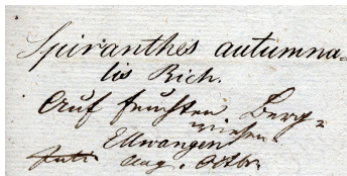 Spiranthes autumna-
lis Rich.
Auf feuchten Berg=
wiesen.
Ellwangen
Aug. Octbr.